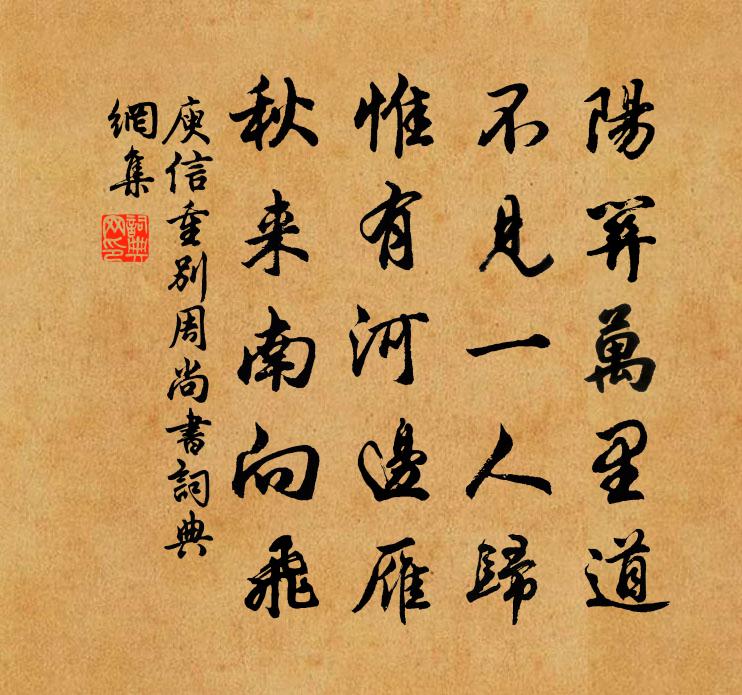 陽關萬里道
不見一人歸
惟有河邊雁
秋来南向飛
庾信重别周尚書詞典
網集
詞典
网印